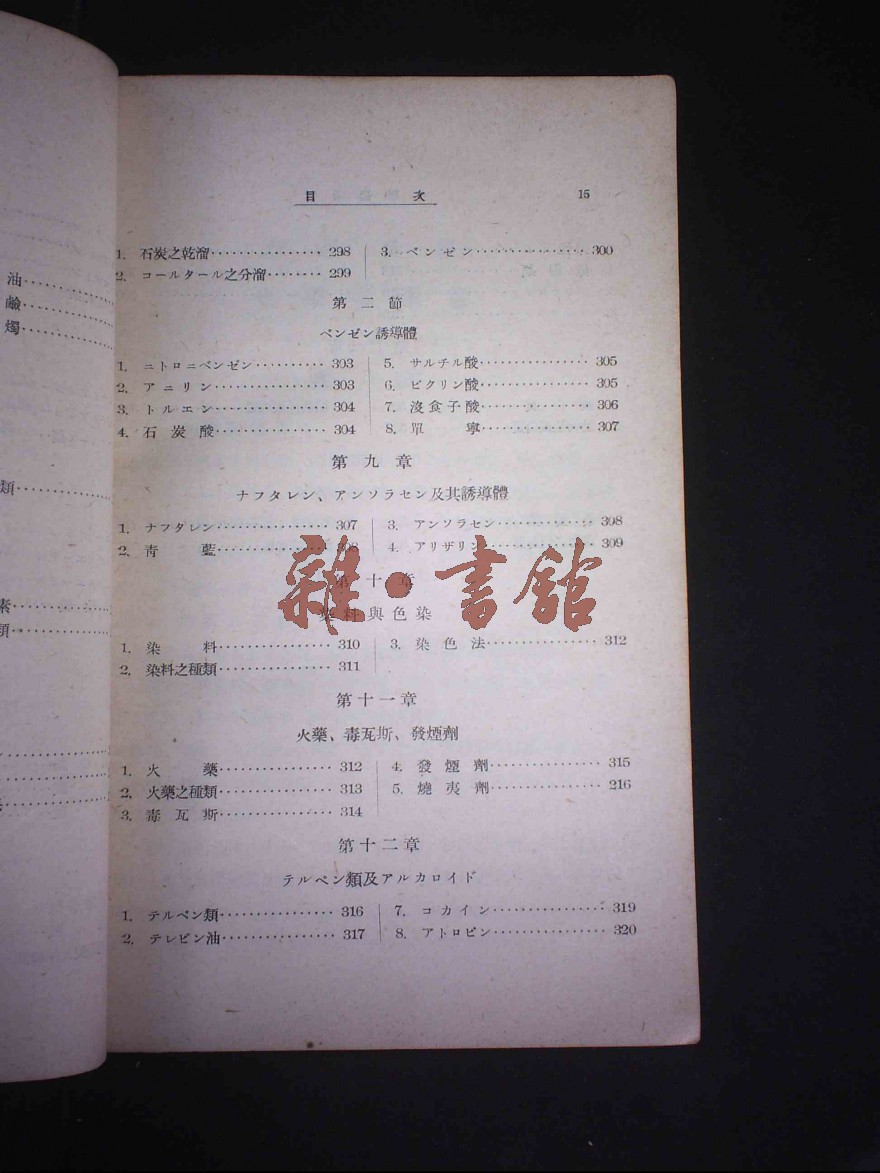 油
鹼
燭
類
素
頪
目 次 15
1. 石炭之乾溜 298 3. ベンゼン 300
2. コールタール之分溜 299
第二節
ベンゼン誘導體
1. ニトロニベンゼン 303 5. サルチル酸 305
2. アニリン 303 6. ピクリン酸 305
3. トルエン 304 7. 沒食子酸 306
4. 石炭酸 304 8. 單寧 307
第九章
ナフタレン、アンソラセン及其誘導體
1. ナフタレン 307 3. アンソラセン 308
2. 青藍 308 4. アリザリン 309
第十章
染料與色染
1. 染料 310 3. 染色法 312
2. 染料之種類 311
第十一章
火藥、毒瓦斯、發煙劑
1. 火藥 312 4. 發煙劑 315
2. 火藥之種類 313 5. 燒夷劑 216
3. 毒瓦斯 314
第十二章
テルペン類及アルカロイド
1. テルペン類 316 7. コカイン 319
2. テレビン油 317 8. アトロピン 320
雜·書館